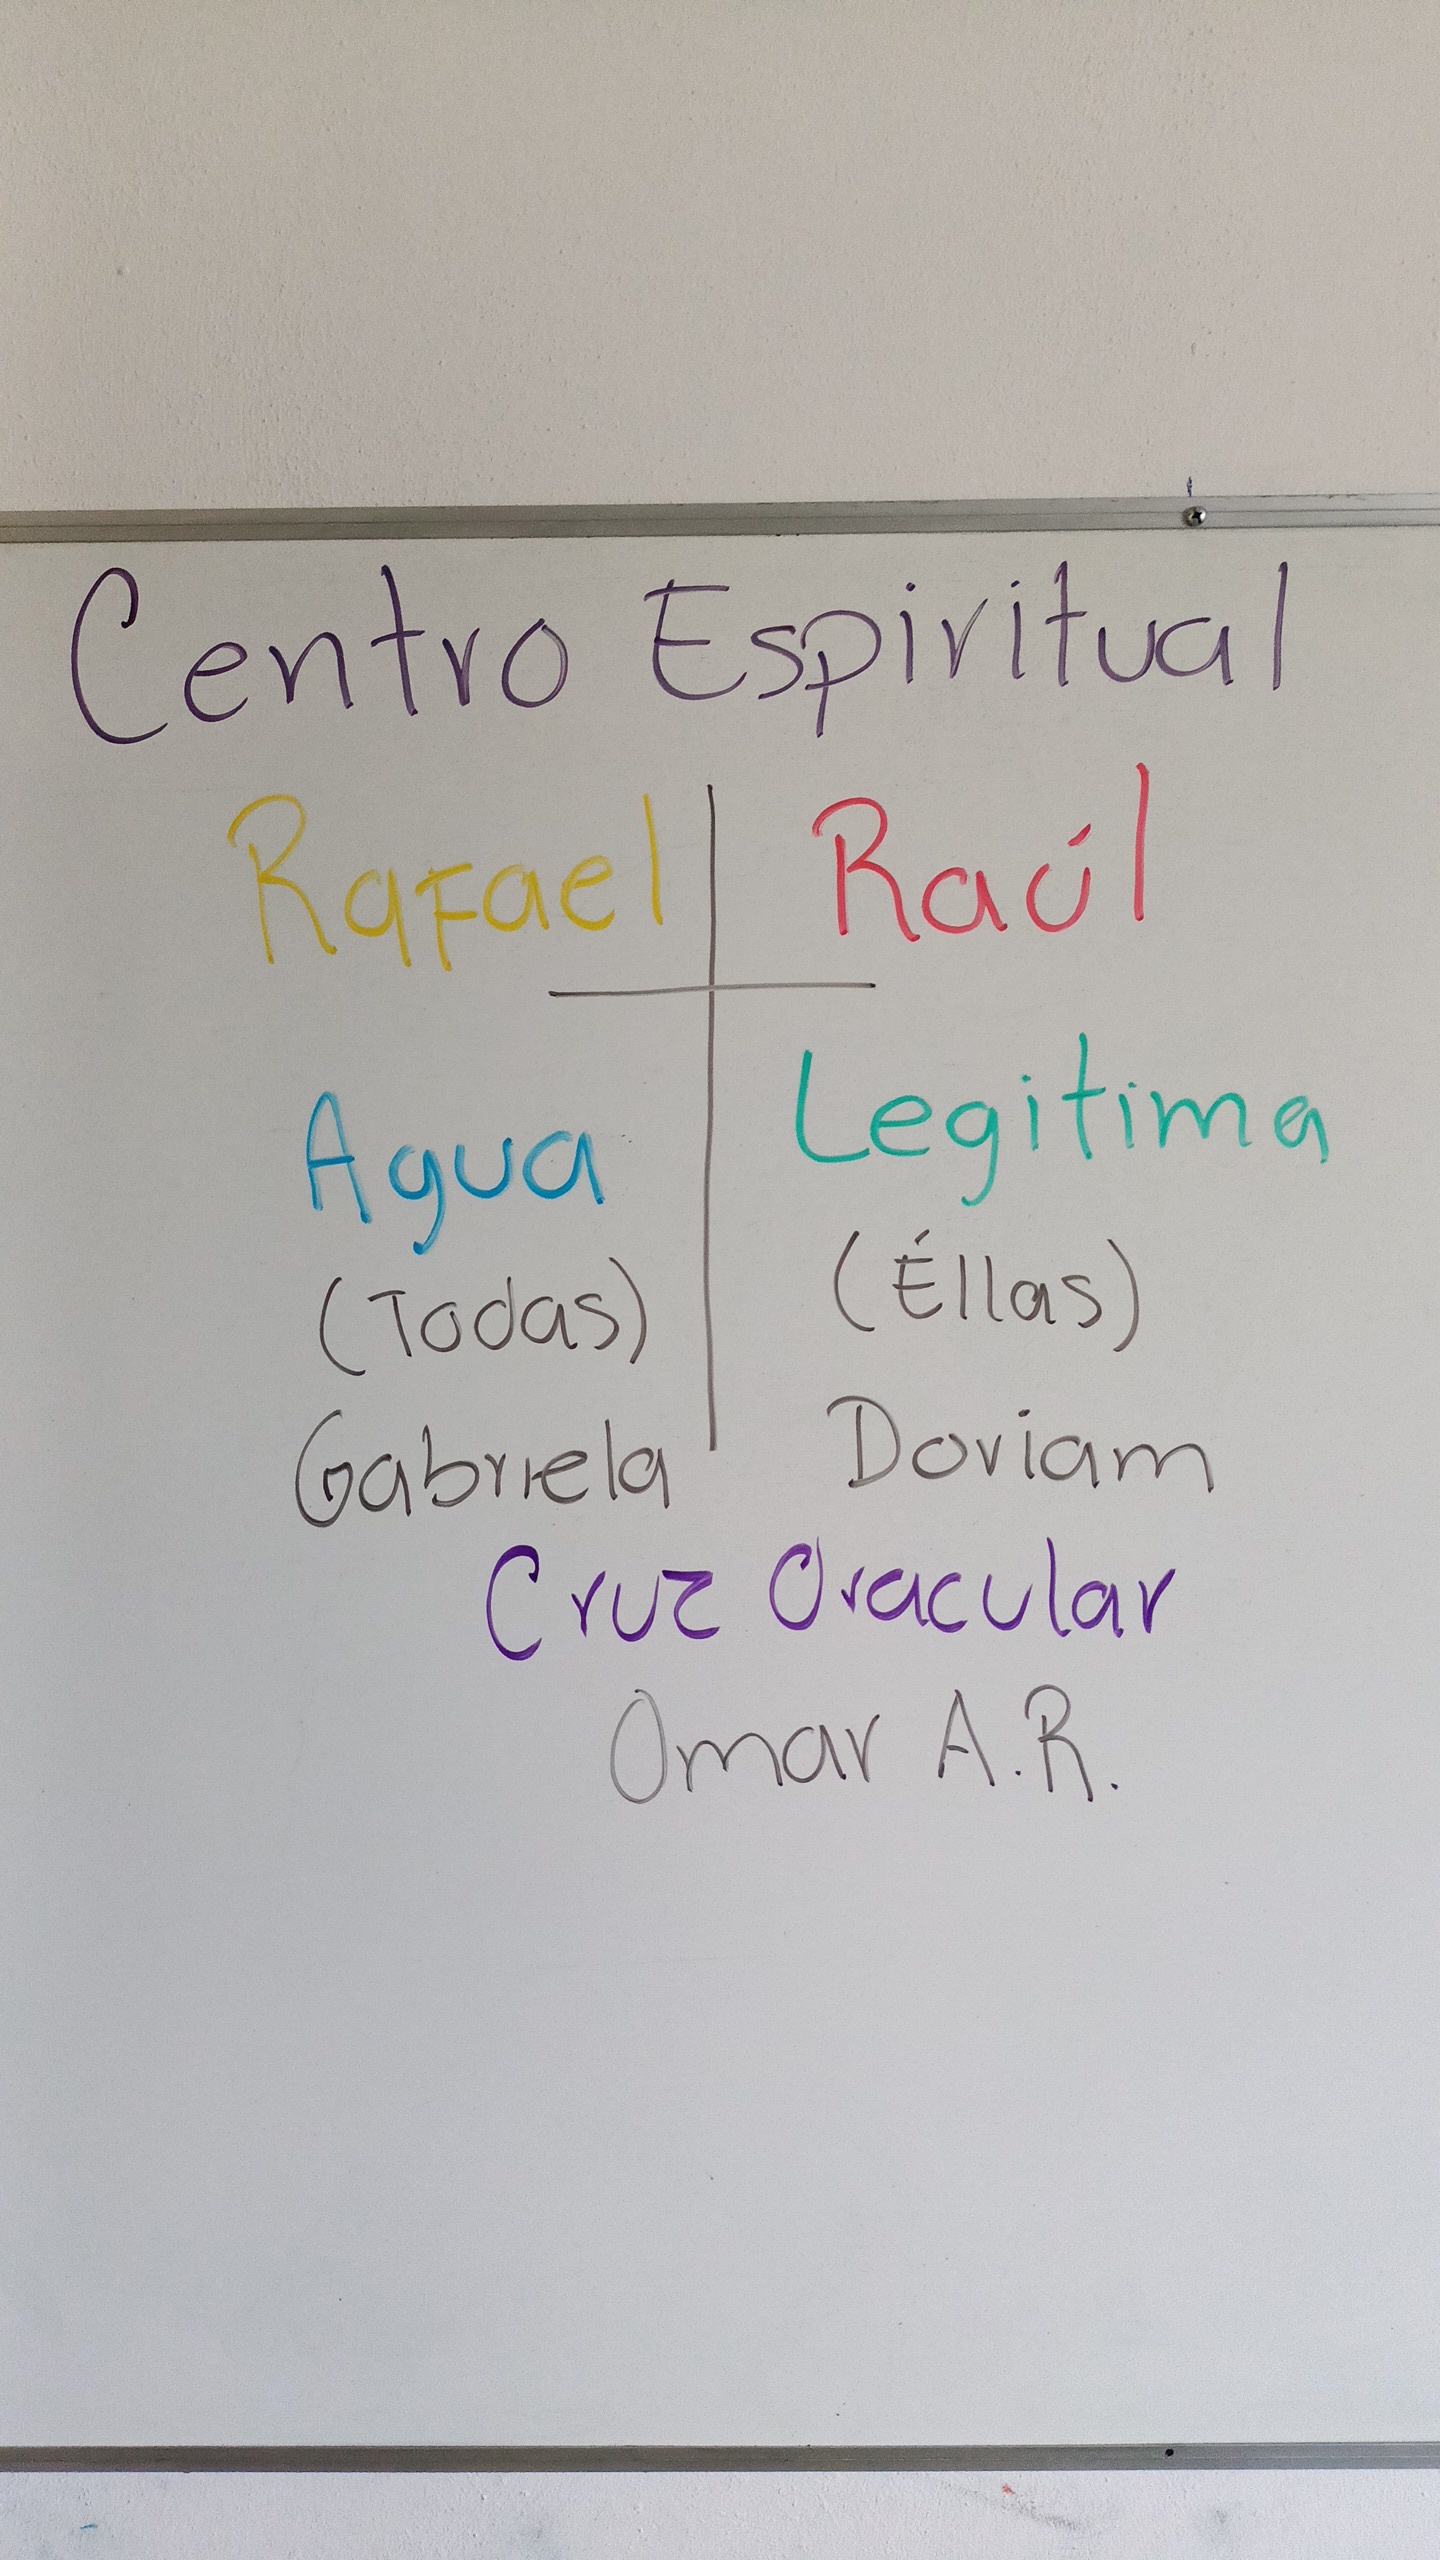 Centro Espiritual
Rafael Raúl
Agua Legitima
(Todas) (Éllas)
Gabriela Doriam
Cruz Oracular
Omar A.R.